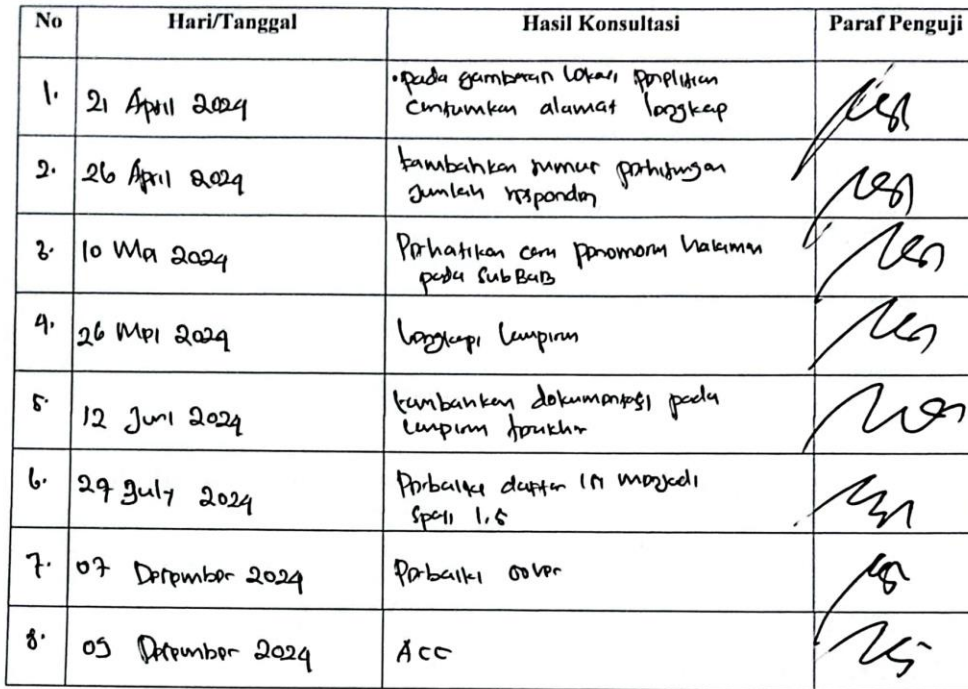 No Hari/Tanggal Hasil Konsultasi Paraf Penguji
1. 21 April 2024 • pada gambaran lokasi penelitian
cantumkan alamat lengkap
2. 26 April 2024 tambahkan rumus perhitungan
Jumlah responden
3. 10 Mei 2024 Perhatikan cara penomoran halaman
pada SubBaB
4. 26 Mei 2024 lengkapi lampiran
5. 12 Juni 2024 tambahkan dokumentasi pada
lampiran terakhir
6. 29 July 2024 Perbaiki daftar isi menjadi
spasi 1.5
7. 07 Desember 2024 Perbaiki cover
8. 09 Desember 2024 Acc